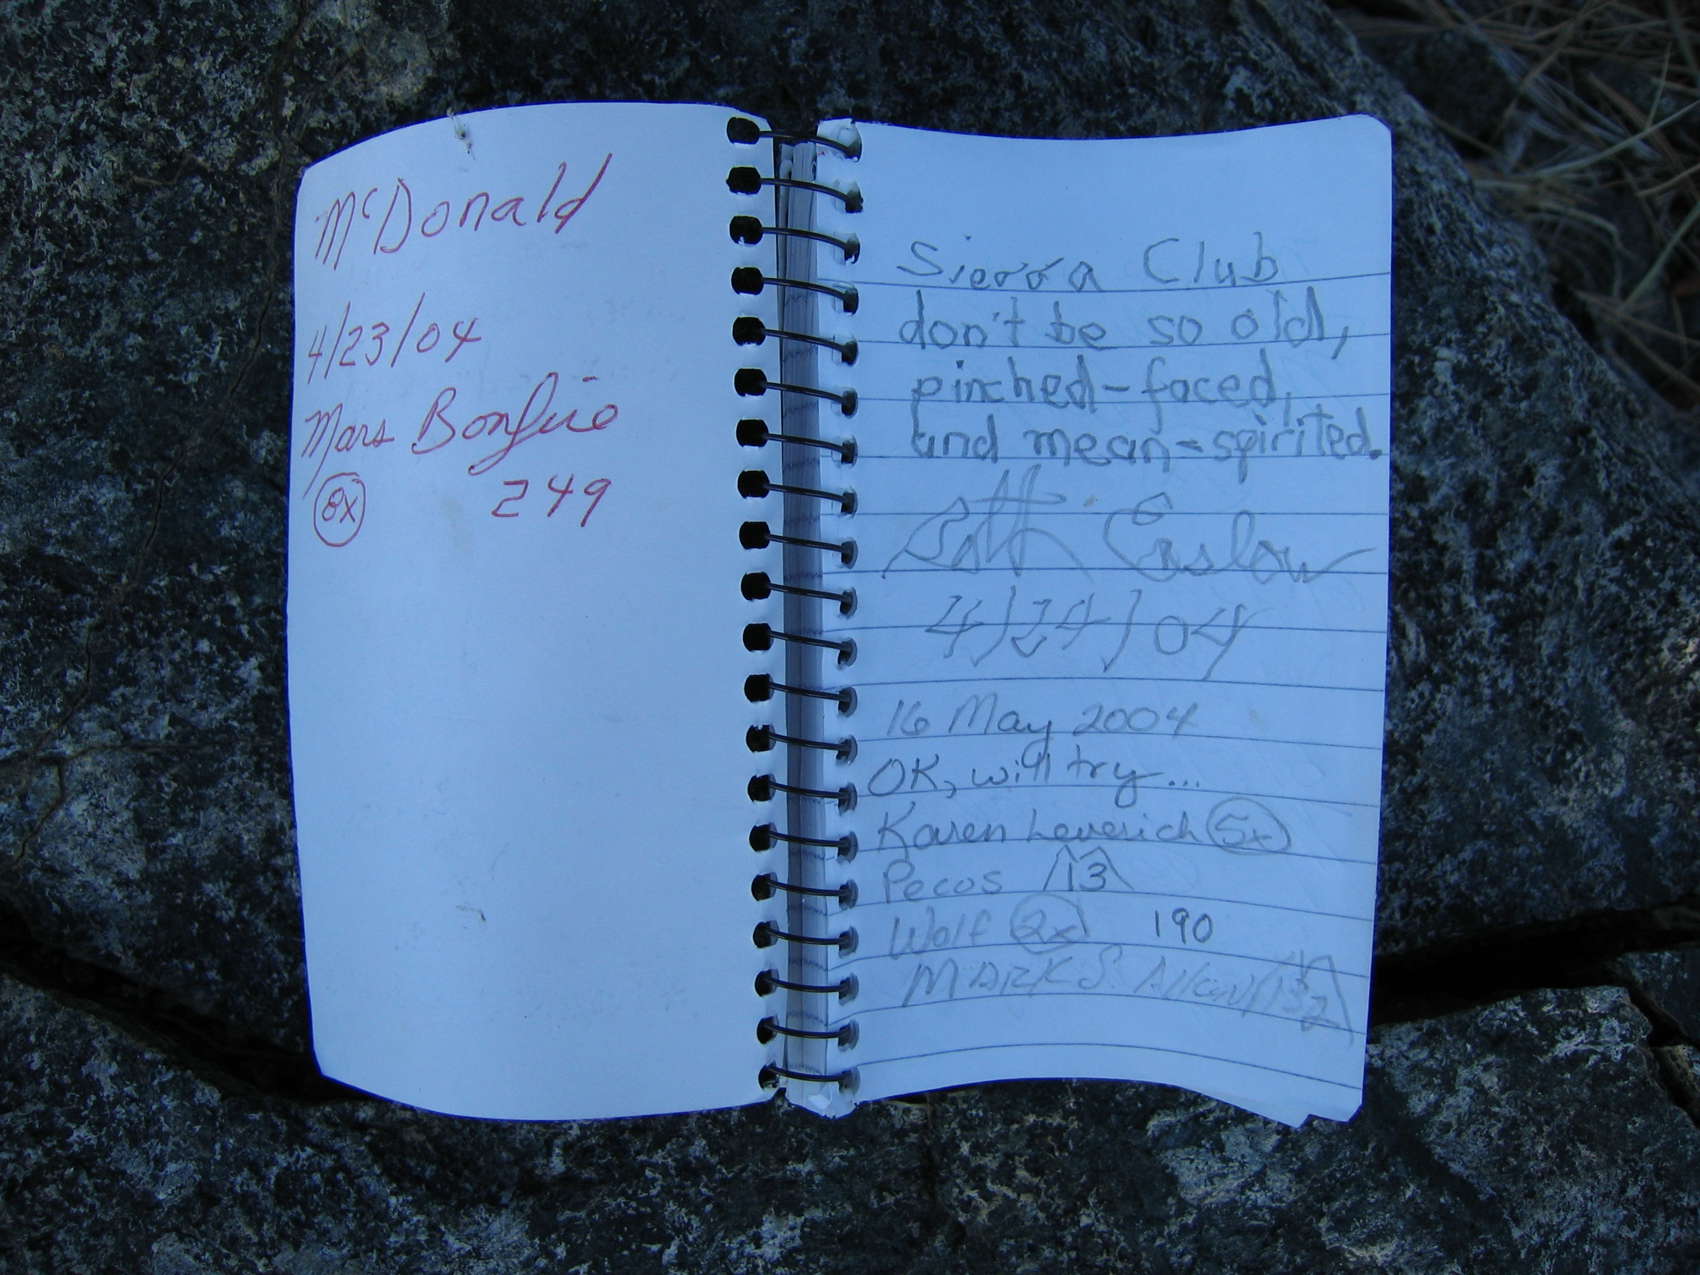 McDonald
4/23/04
Mars Bonfire
8x 249
Sierra Club
don't be so old,
pinched-faced,
and mean-spirited.
Enslow
4/24/04
16 May 2004
OK, will try...
Karen Leverich 5x
Pecos 13
Wolf 2x 190
MARK S.